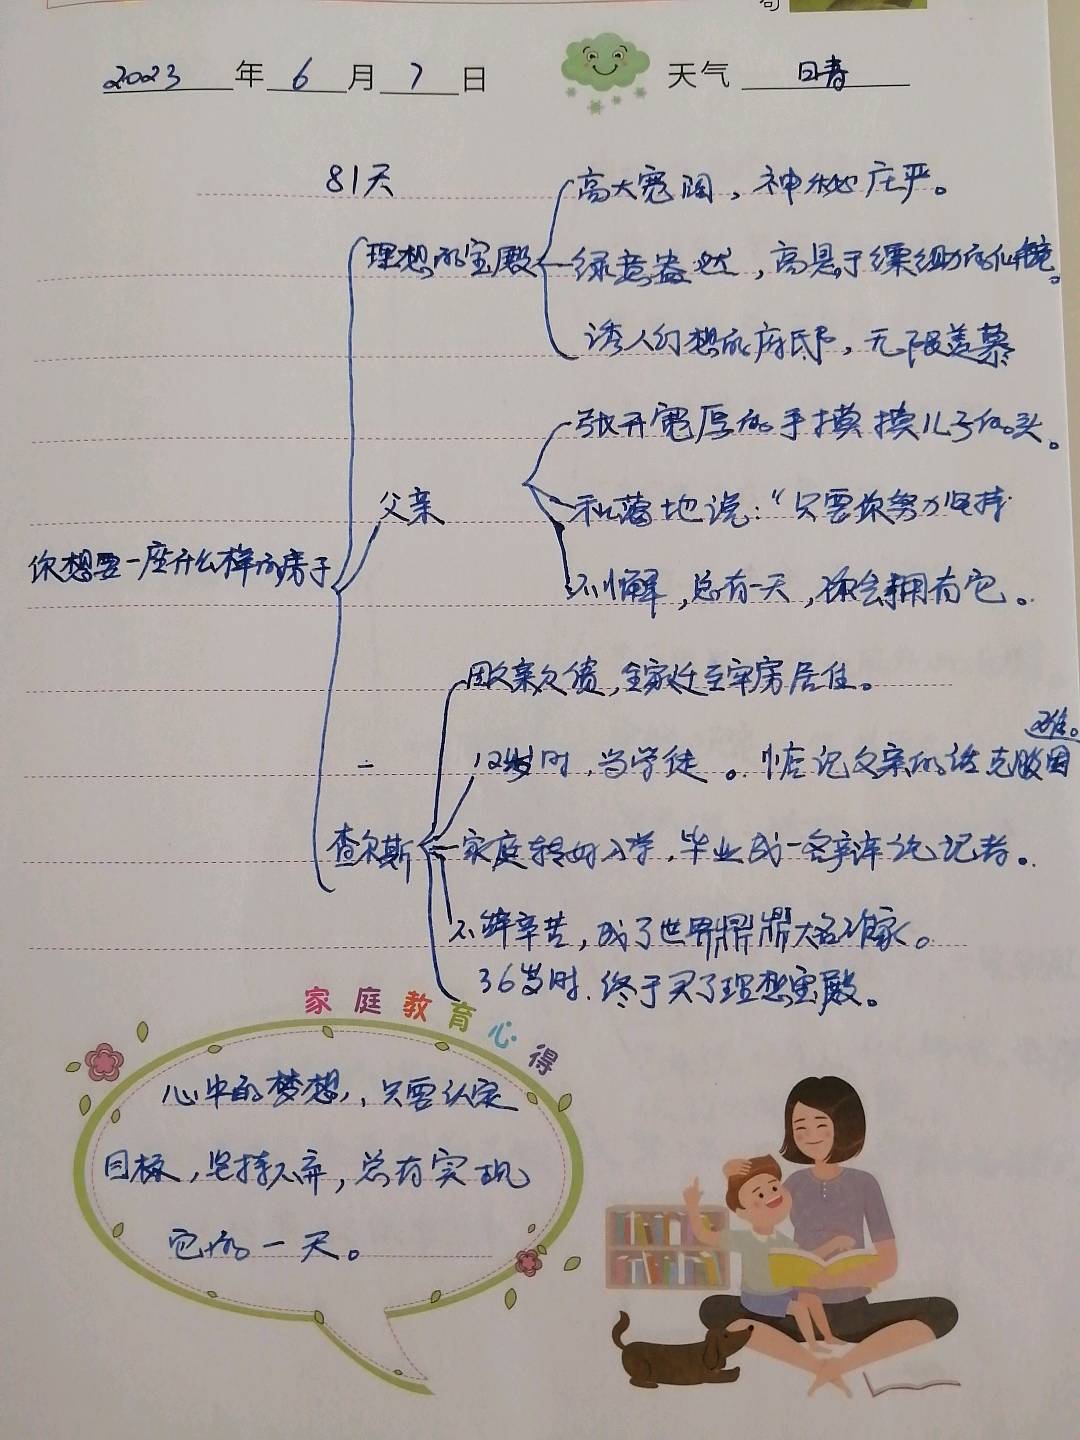 2023年6月7日 天气 晴
81天
高大宽阔，神秘庄严。
理想的宝殿
绿意盎然，高悬于缥缈的仙境。
诱人幻想的府邸，无限羡慕
张开宽厚的手摸摸儿子的头。
父亲
利落地说：“只要你努力坚持
你想要一座什么样的房子
不懈，总有一天，你会拥有它。
因父亲欠债，全家迁至牢房居住。
12岁时，当学徒。惦记父亲的话克服困难。
查尔斯
家庭转好入学，毕业成一名辩论记者。
不辞辛苦，成了世界鼎鼎大名作家。
36岁时.终于买了理想宝殿。
家庭教育心得
心中的梦想，只要认定
目标，坚持不弃，总有实现
它的一天。